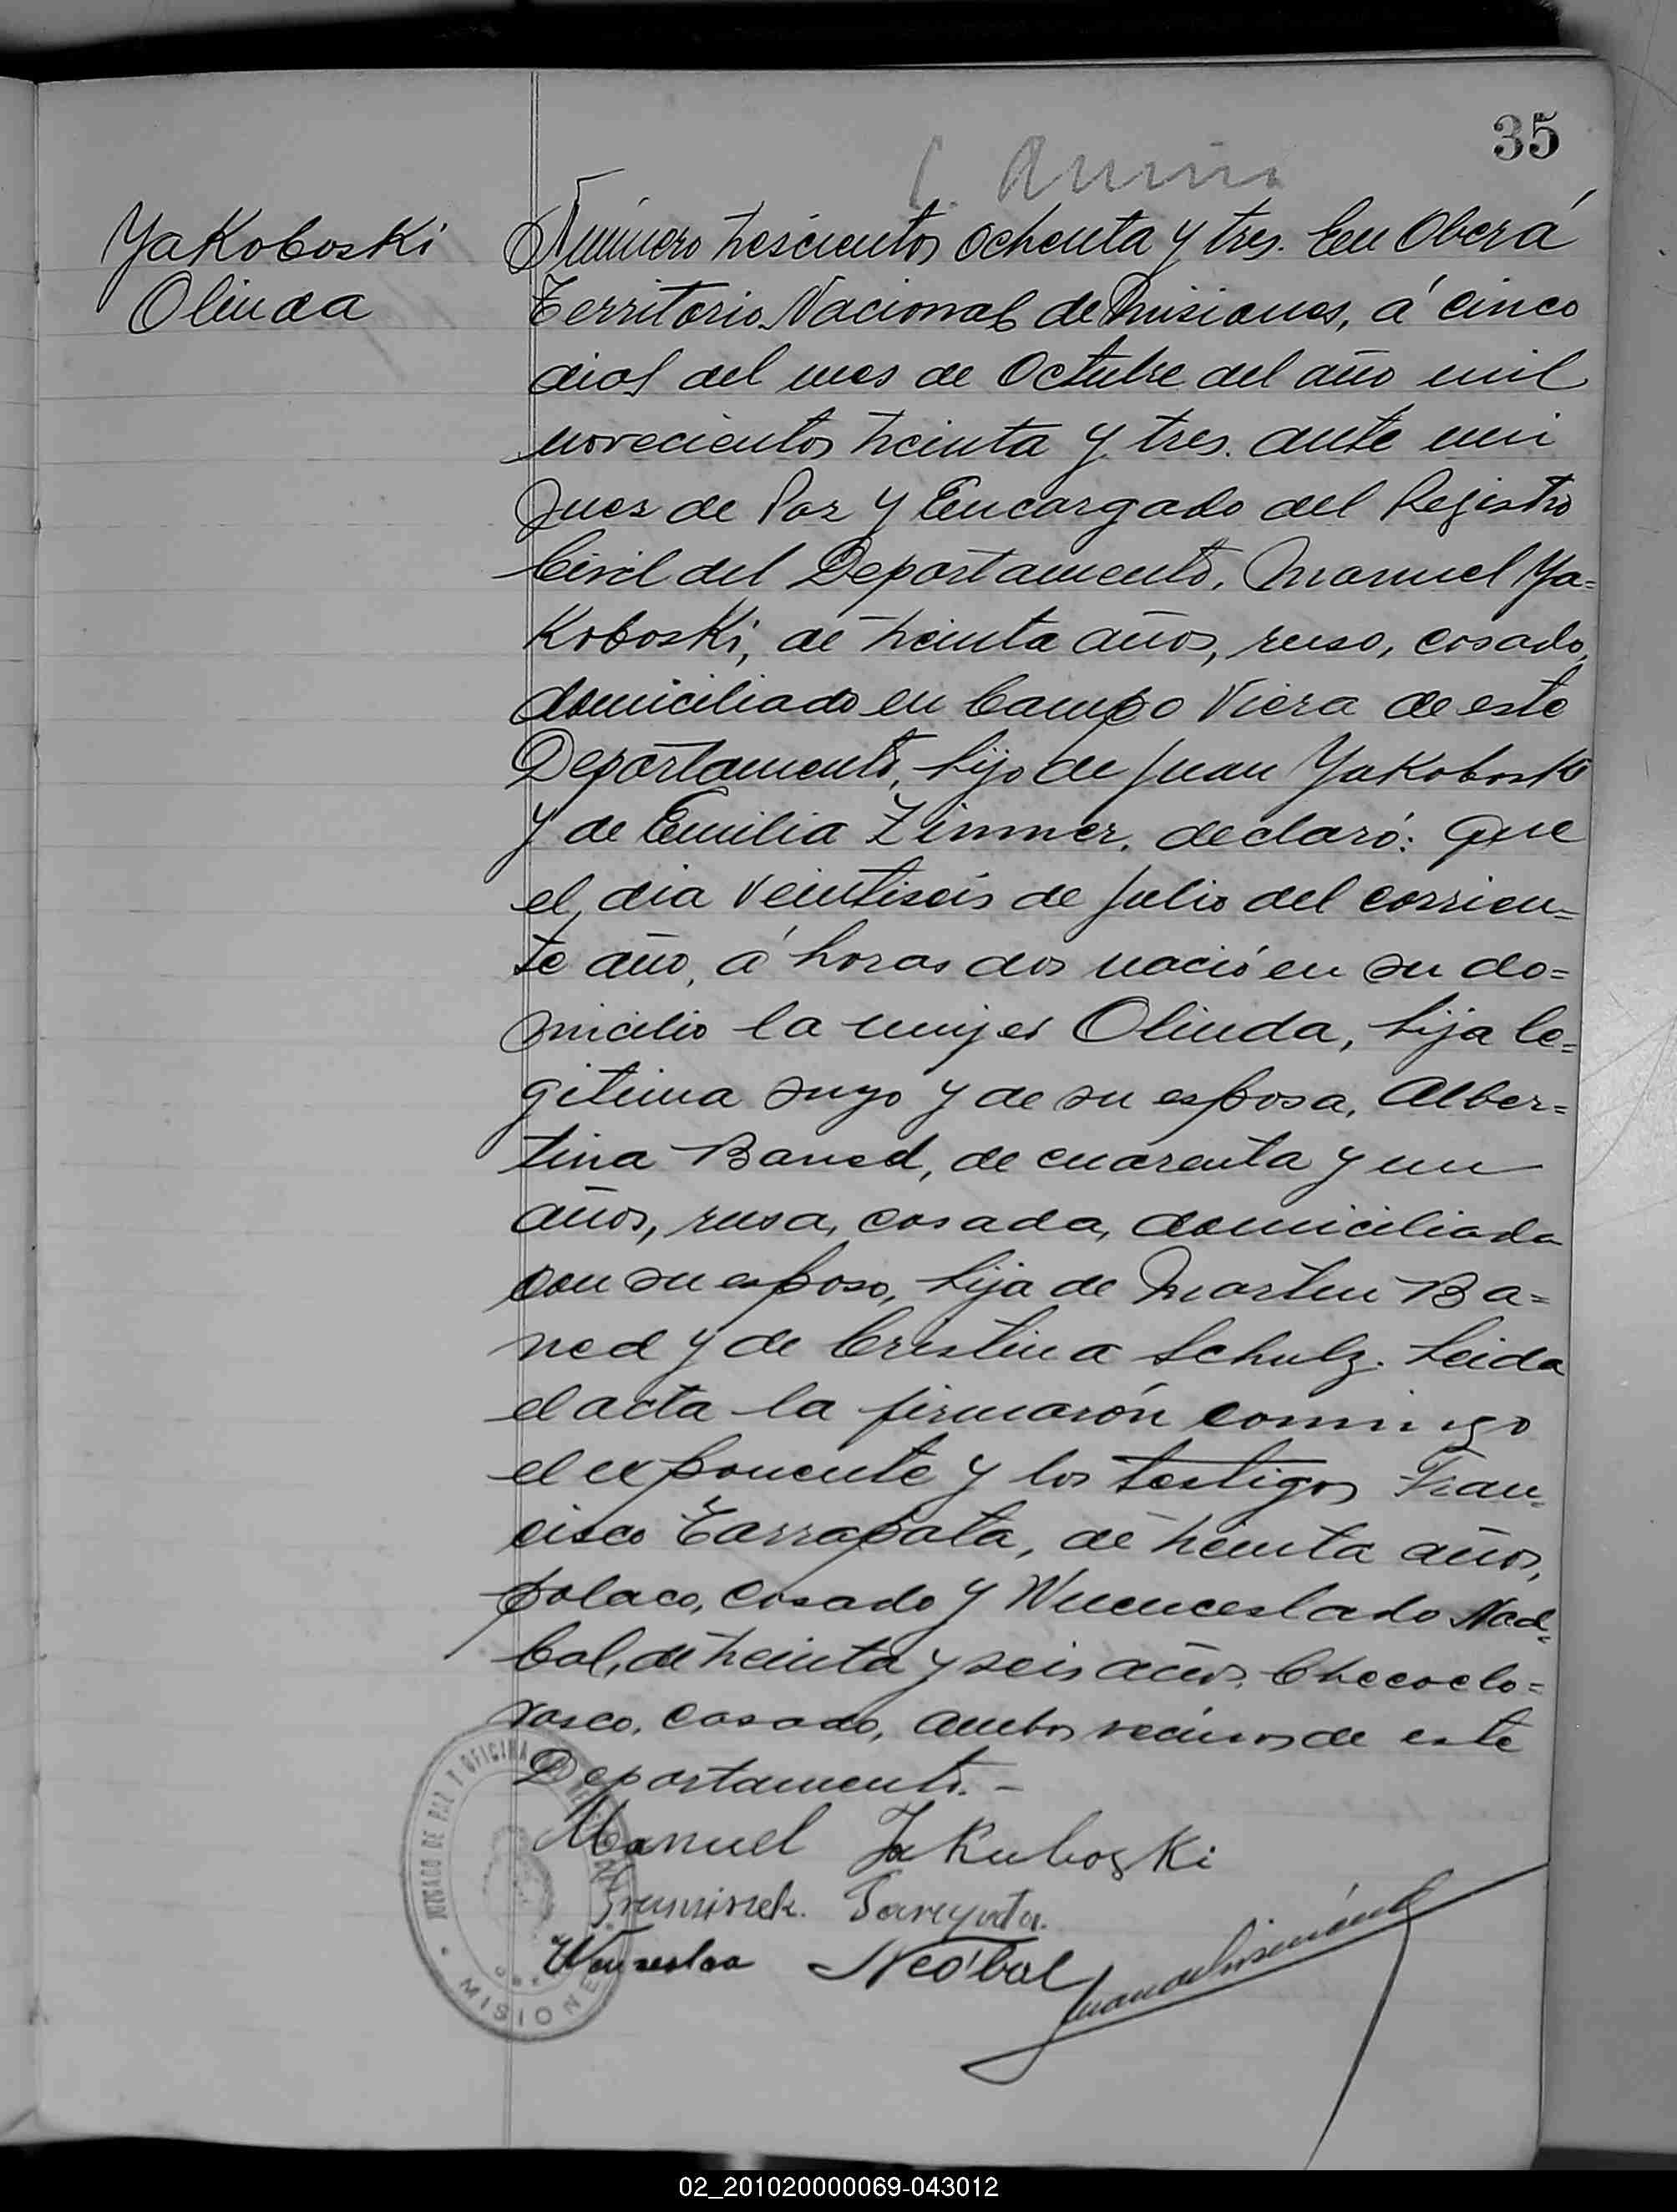 35
Yakoboski
Olinda
Número trescientos ochenta y tres. En Oberá
Territorio Nacional de Misiones, á cinco
dias del mes de Octubre del año mil
novecientos treinta y tres. ante mi
Juez de Paz y Encargado del Registro
Civil del Departamento, Manuel Ya=
Koboski, de treinta años, ruso, casado,
domiciliado en Campo Viera de este
Departamento, hijo de Juan Yakoboski
y de Emilia Zimmer, declaró: Que
el dia veintiseis de Julio del corrien=
te año, á horas dos nació en su do=
micilio la mujer Olinda, hija le=
gitima suya y de su esposa, Alber=
tina Baned, de cuarenta y un
años, rusa, casada, domiciliada
con su esposo, hija de Martin Ba=
ned y de Cristina Schulz. Leida
el acta la firmarón conmigo
el exponente y los testigos Fran=
cisco Tarrapata, de treinta años,
polaco, casado y Wuenceslado Ned=
bal, de treinta y seis años, Checoeslo=
vasco, casado, ambos vecinos de este
Departamento.-
Manuel Jakuboski
Neóbal
JUZGADO DE PAZ Y OFICINA
MISIONES
02_201020000069-043012